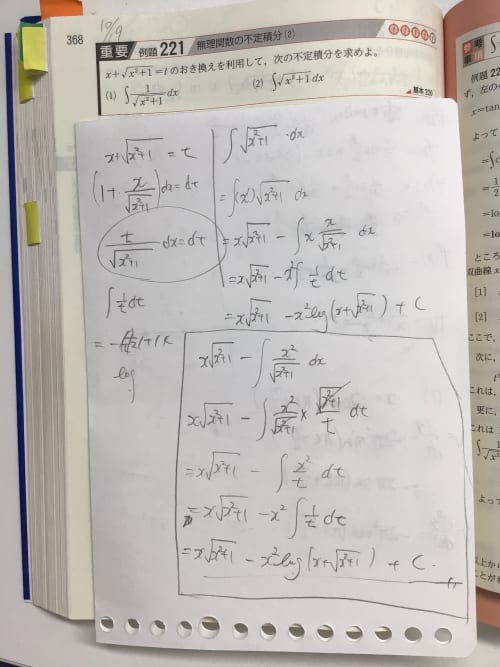 10/9
368
重要 例題 221 無理関数の不定積分(2)
x+√(x²+1)=t のおき換えを利用して,次の不定積分を求めよ。
(1) ∫ 1/√(x²+1) dx (2) ∫√(x²+1) dx
基本 220
x+√(x²+1) = t
(1+ x/√(x²+1)) dx = dt
t/√(x²+1) dx = dt
∫ 1/t dt
log
∫√(x²+1) dx
= ∫(x)'√(x²+1) dx
= x√(x²+1) - ∫ x x/√(x²+1) dx
= x√(x²+1) - x²∫ 1/t dt
= x√(x²+1) - x² log(x+√(x²+1)) + C
x√(x²+1) - ∫ x²/√(x²+1) dx
x√(x²+1) - ∫ x²/√(x²+1) × √(x²+1)/t dt
= x√(x²+1) - ∫ x²/t dt
= x√(x²+1) - x² ∫ 1/t dt
= x√(x²+1) - x² log(x+√(x²+1)) + C.
参考
事項
例題 22
ず,左の
x=tan
=∫
=1/2
=lo
=lo
ところ
双曲線 x
[1]
[2]
ここで,
これは,
更に,
これは
よって
以上か
ことが